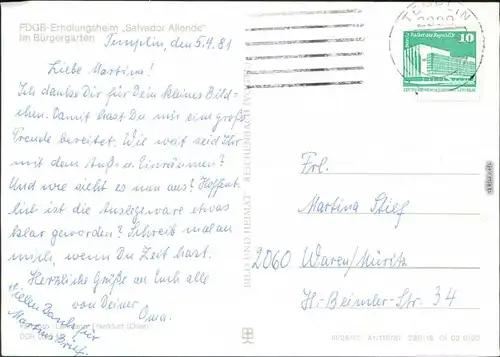 FDGB-Erholungsheim „Salvador Allende"
im Bürgergarten
Templin, den 5.9.81
Liebe Martina!
Ich danke Dir für Dein kleines Bild-
chen. Damit hast Du mir eine große
Freude bereitet. Wie weit seid Ihr
mit dem Auf- u. Einräumen?
Und wie sieht es nun aus? Hoffent-
lich ist die Auslegeware etwas
klar geworden? Schreib mal an
mich, wenn Du Zeit hast.
Herzliche Grüße an Euch alle
von Deiner
Oma.
Vielen Dank für
Martinas Brief.
BILD UND HEIMAT REICHENBACH
TEMPLIN
2090
Palast der Republik
10
DDR
Frl.
Martina Stief
2060 Waren/Müritz
H.-Beimler-Str. 34
Frankfurt (Oder)
DDR